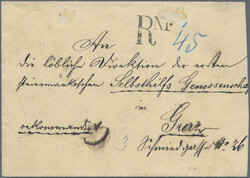 R Nr 45
An
die löbliche Direktion der ersten
steiermärkischen Selbsthilfs Genossenscha
in
Graz
rekommandirt 3 Schmiedgasse No 26